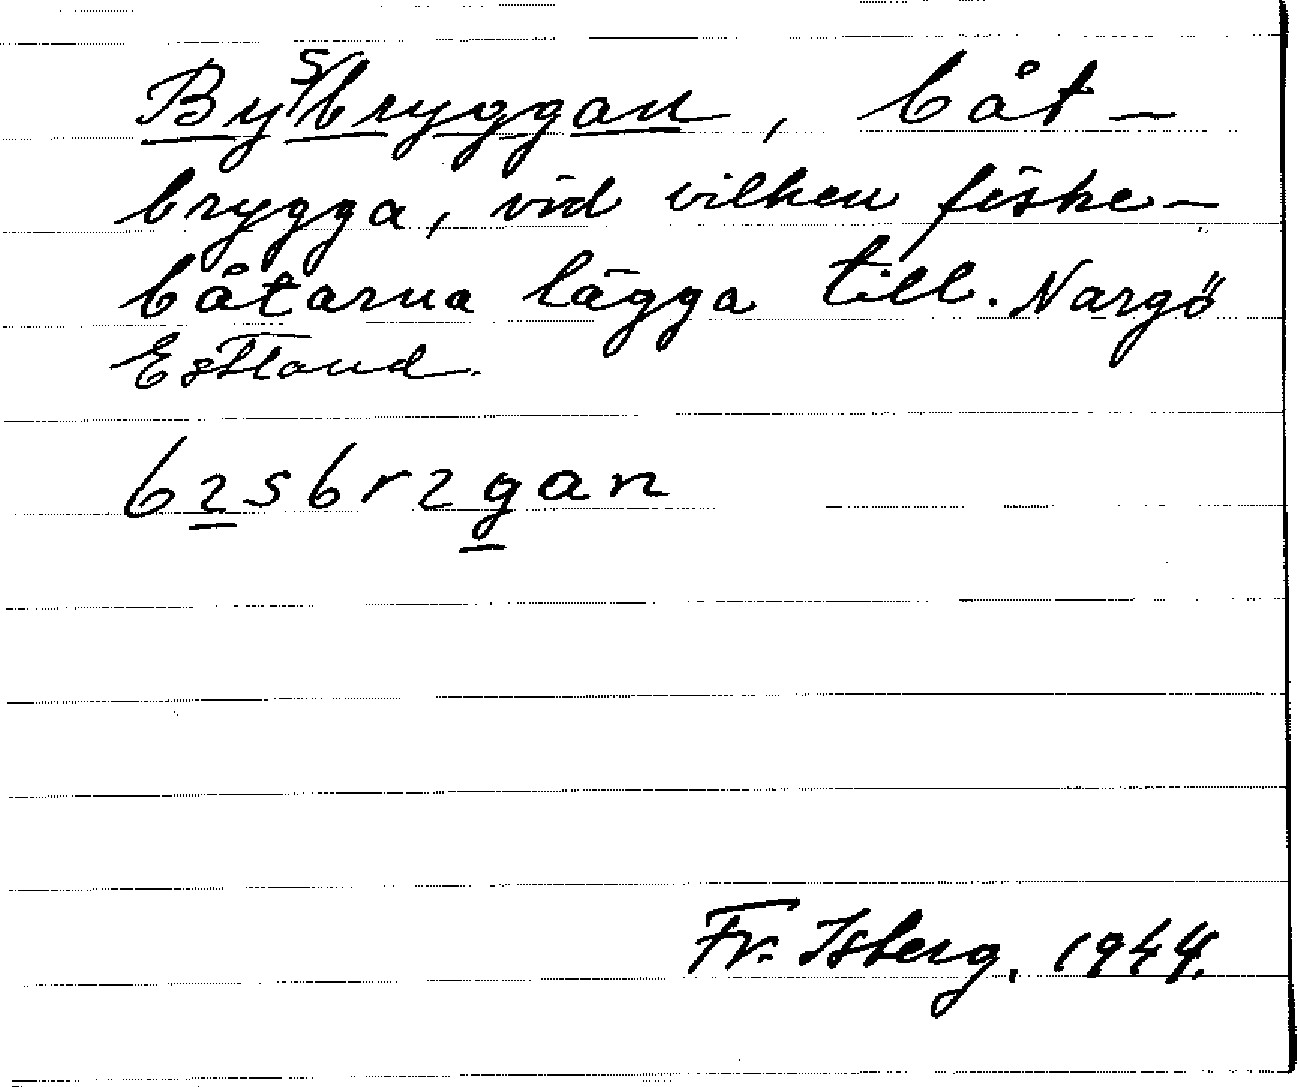 Bysbryggan, båt-
brygga, vid vilken fiske-
båtarna lägga till. Nargö
Estland.
b2sbr2gan
Fr. Isberg, 1944.